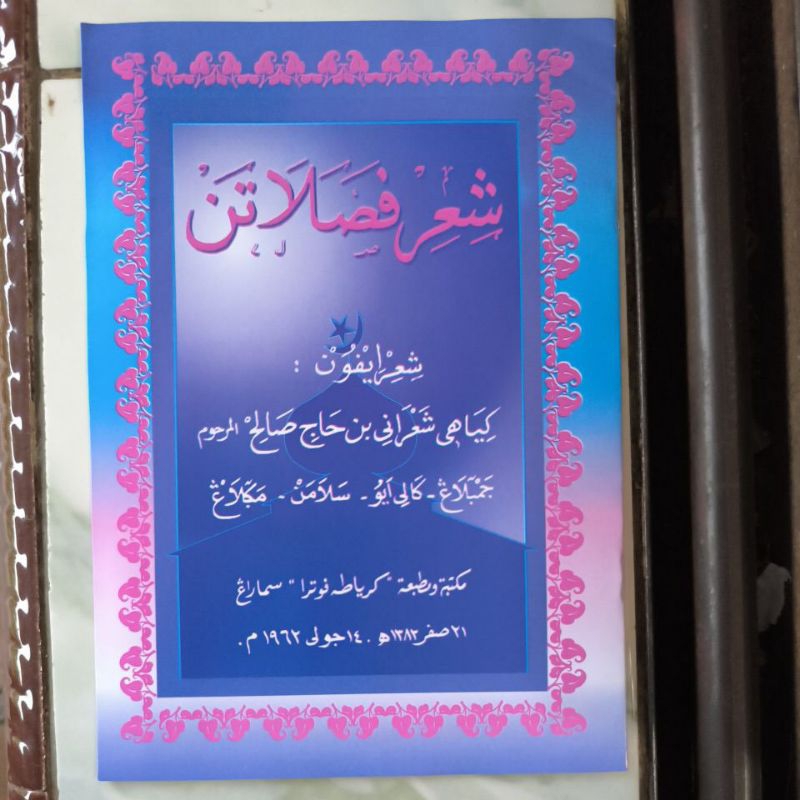 شِعِرْ فَصَلَاتَنْ
شِعِرْ اِيْفُوْنْ :
كِيَاهِي شَعْرَانِي بن حَاجِ صَالِحْ المرحوم
جَمْبَلَاڠْ - كَالِي اَبُو - سَلَامَنْ - مَڮَلَاڠْ
مكتبة ومطبعة "كرياطه فوترا" سماراڠ
٢١ صفر ١٣٨٢ھ . ١٤ جولى ١٩٦٢ م.